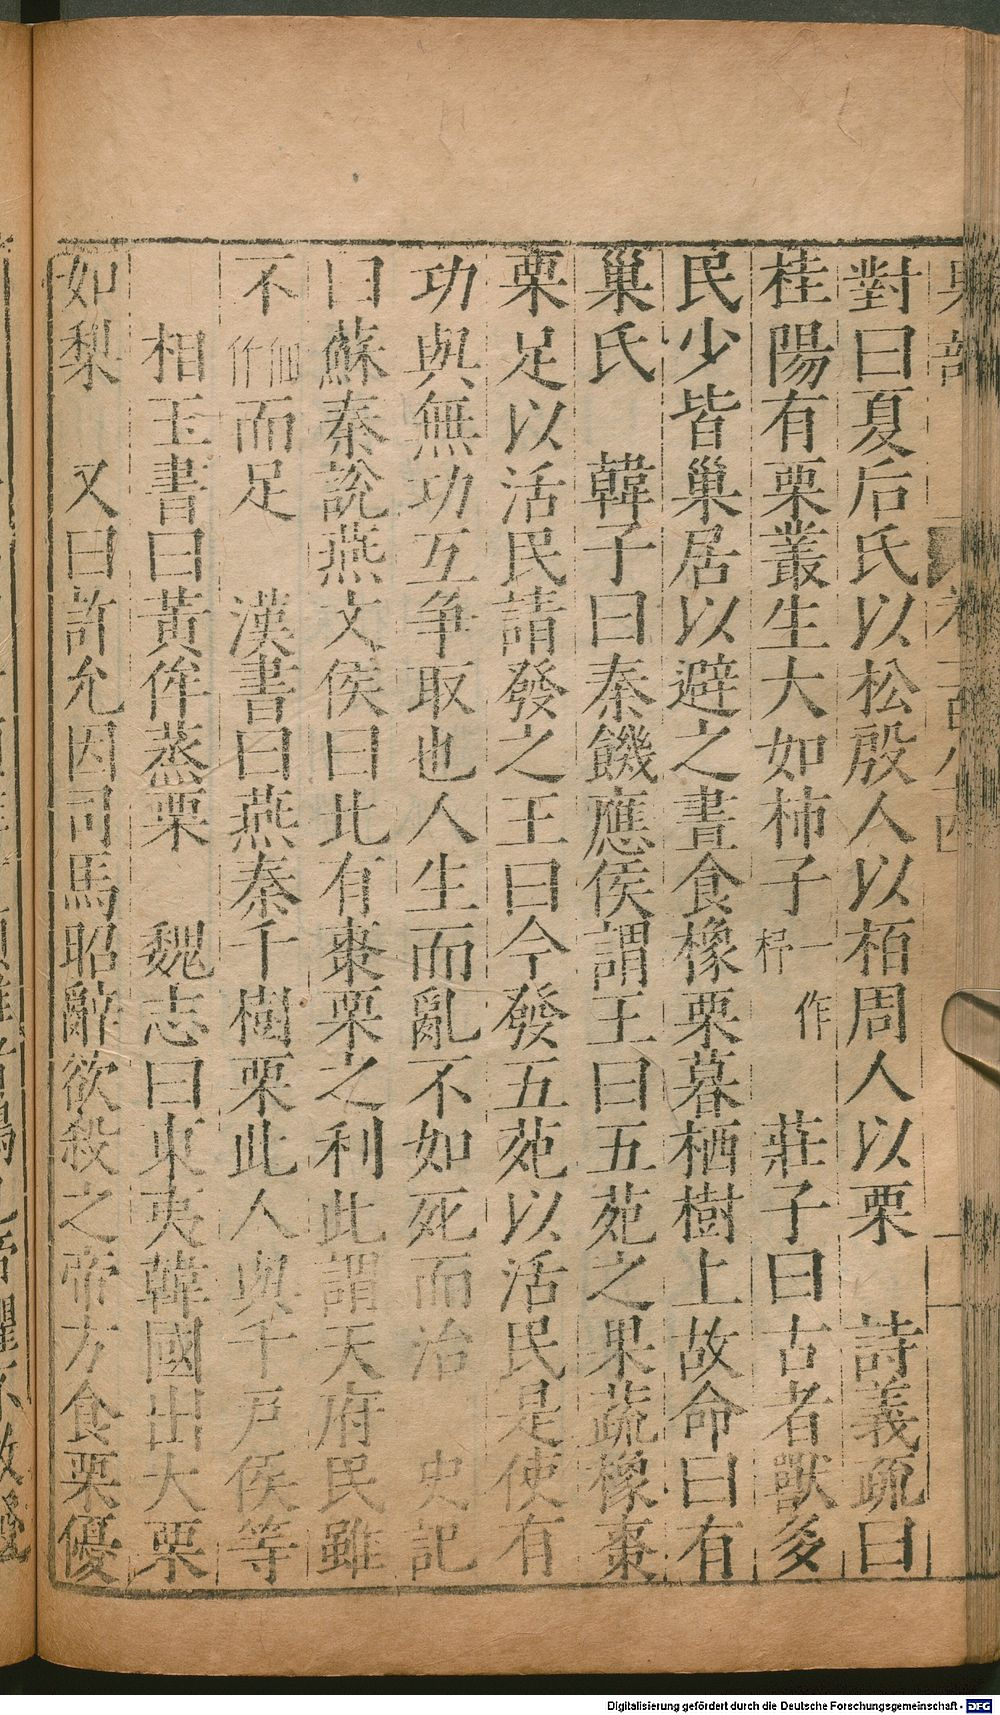 對曰夏后氏以松殷人以栢周人以栗　詩義疏曰
桂陽有栗叢生大如柿子一作杼　莊子曰古者獸多
民少皆巢居以避之晝食橡栗暮栖樹上故命曰有
巢氏　韓子曰秦饑應侯謂王曰五苑之果蔬橡棗
栗足以活民請發之王曰今發五苑以活民是使有
功與無功互争取也人生而亂不如死而治　史記
曰蘇秦說燕文侯曰此有棗栗之利此謂天府民雖
不佃作而足　漢書曰燕秦千樹栗此人與千戸侯等
相玉書曰黃侔蒸栗　魏志曰東夷韓國出大栗
如梨　又曰許允因司馬昭辭欲殺之帝方食栗優
Digitalisierung gefördert durch die Deutsche Forschungsgemeinschaft - DFG